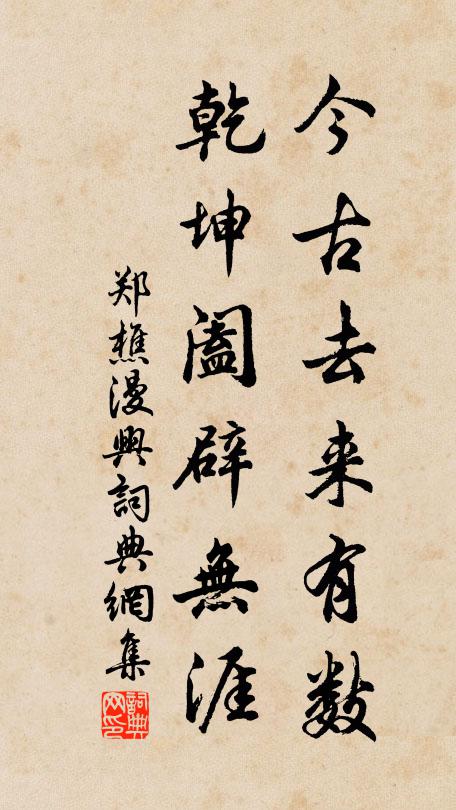 今古去来有数
乾坤阖辟無涯
郑樵漫興詞典網集
詞典网印